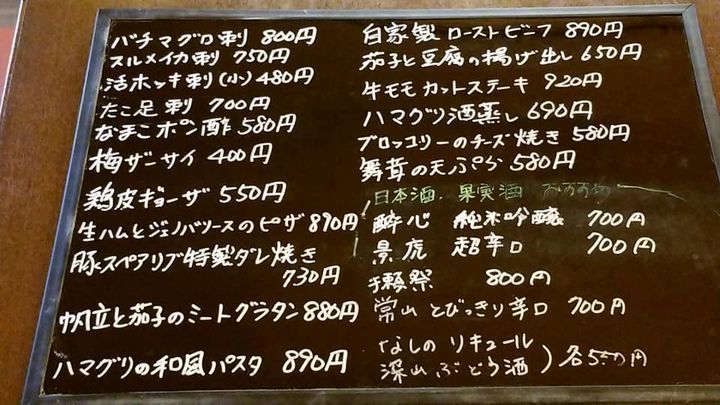 バチマグロ刺 800円
スルメイカ刺 750円
活ホッキ刺(小)480円
たこ足刺 700円
なまこポン酢 580円
梅ザーサイ 400円
鶏皮ギョーザ 550円
生ハムとジェノバソースのピザ 890円
豚スペアリブ特製ダレ焼き
730円
帆立と茄子のミートグラタン 880円
ハマグリの和風パスタ 890円
自家製ローストビーフ 890円
茄子と豆腐の揚げ出し 650円
牛モモカットステーキ 920円
ハマグリ酒蒸し 690円
ブロッコリーのチーズ焼き 580円
舞茸の天ぷら 580円
日本酒・果実酒 おすすめ
酔心 純米吟醸 700円
景虎 超辛口 700円
獺祭 800円
常山 とびっきり辛口 700円
なしのリキュール
深山ぶどう酒 ) 各550円